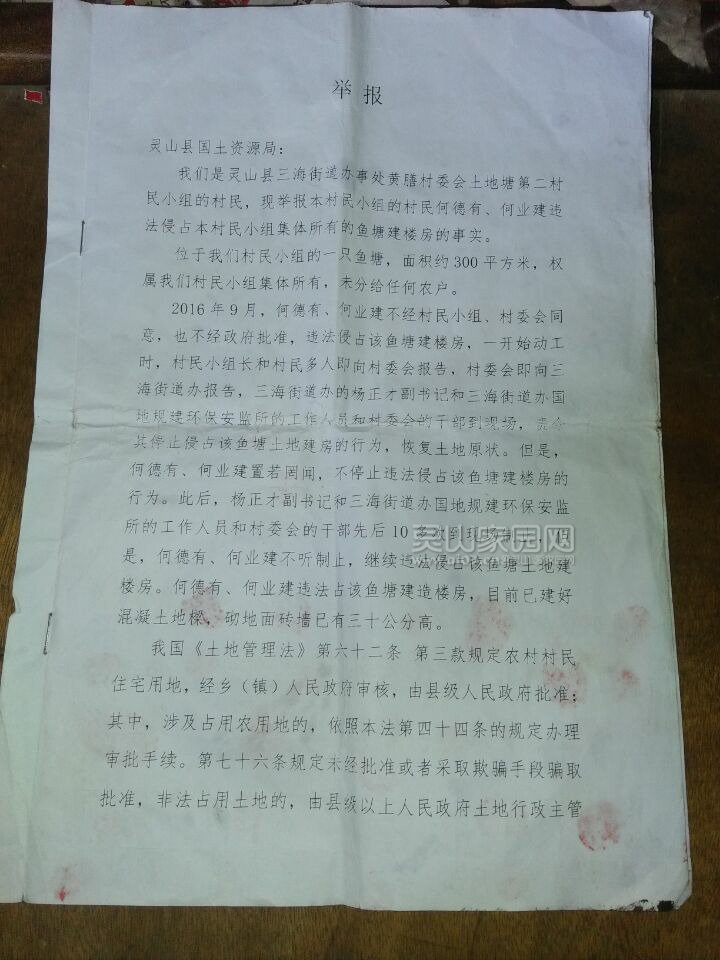 举报
灵山县国土资源局：
我们是灵山县三海街道办事处黄膳村委会土地塘第二村
民小组的村民，现举报本村民小组的村民何德有、何业建违
法侵占本村民小组集体所有的鱼塘建楼房的事实。
位于我们村民小组的一只鱼塘，面积约300平方米，权
属我们村民小组集体所有，未分给任何农户。
2016年9月，何德有、何业建不经村民小组、村委会同
意，也不经政府批准，违法侵占该鱼塘建楼房，一开始动工
时，村民小组长和村民多人即向村委会报告，村委会即向三
海街道办报告，三海街道办的杨正才副书记和三海街道办国
地规建环保安监所的工作人员和村委会的干部到现场，责令
其停止侵占该鱼塘土地建房的行为，恢复土地原状。但是，
何德有、何业建置若罔闻，不停止违法侵占该鱼塘建楼房的
行为。此后，杨正才副书记和三海街道办国地规建环保安监
所的工作人员和村委会的干部先后10多次到现场制止，但
是，何德有、何业建不听制止，继续违法侵占该鱼塘土地建
楼房。何德有、何业建违法占该鱼塘建造楼房，目前已建好
混凝土地樑，砌地面砖墙已有三十公分高。
我国《土地管理法》第六十二条 第三款规定农村村民
住宅用地，经乡（镇）人民政府审核，由县级人民政府批准；
其中，涉及占用农用地的，依照本法第四十四条的规定办理
审批手续。第七十六条规定未经批准或者采取欺骗手段骗取
批准，非法占用土地的，由县级以上人民政府土地行政主管
灵山家园网